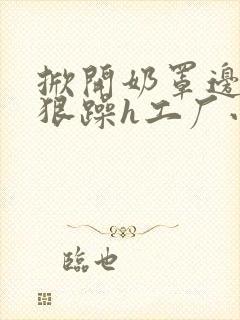 掀開奶罩邊
狠躁h工厂
臨也